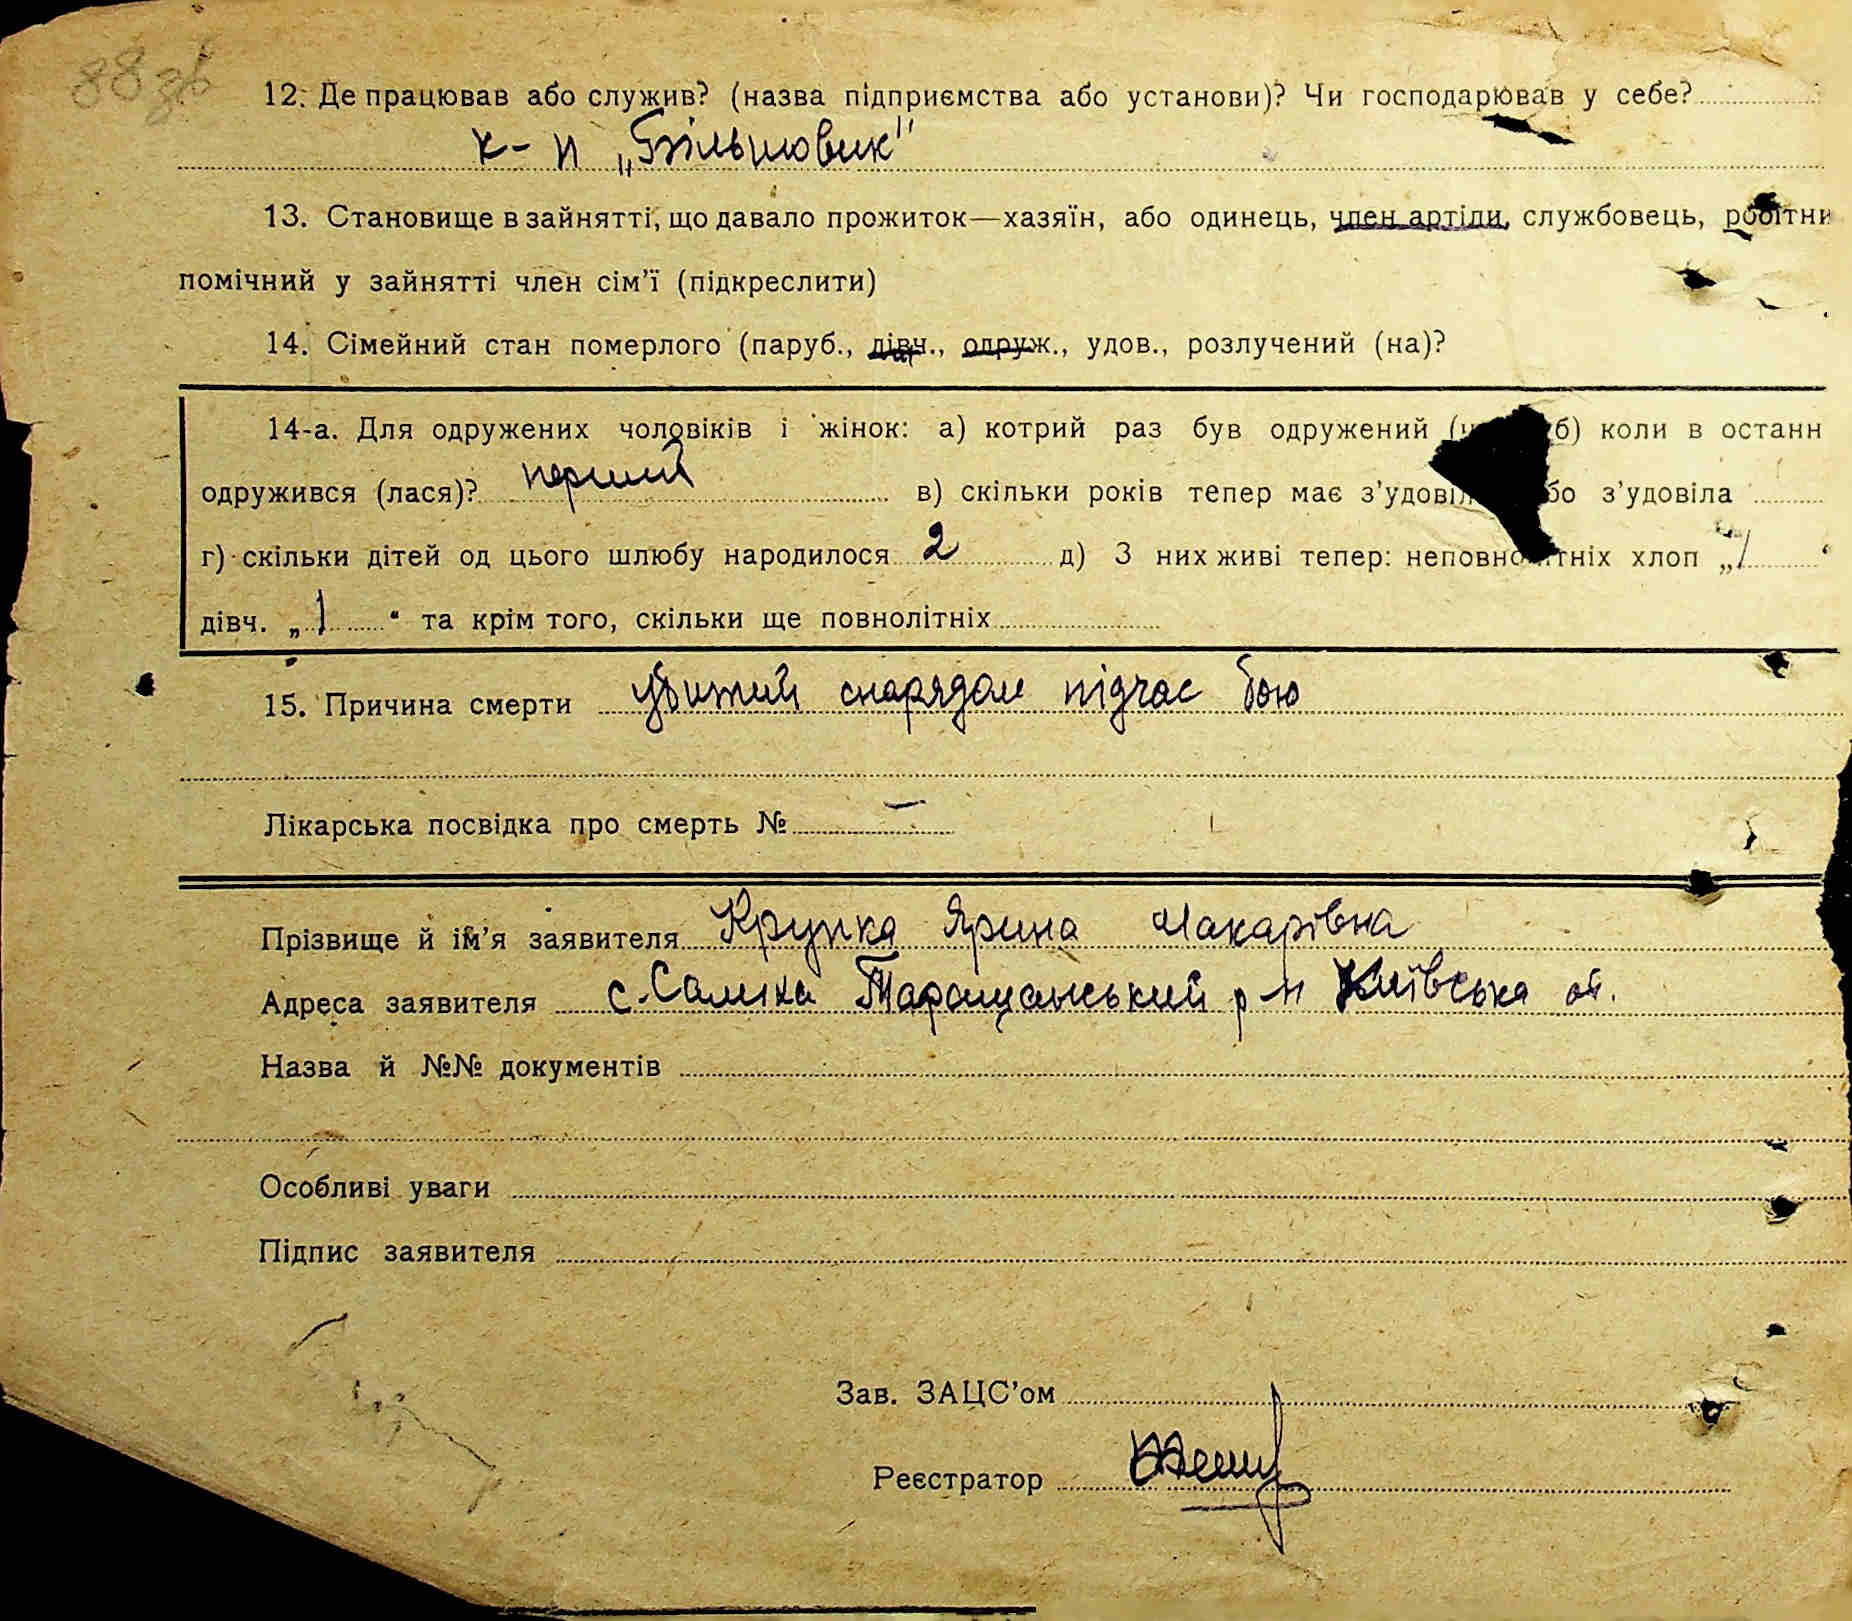 88 зв
12. Де працював або служив? (назва підприємства або установи)? Чи господарював у себе?
к-п „Більшовик"
13. Становище в зайнятті, що давало прожиток—хазяїн, або одинець, член артіли, службовець, робітни
помічний у зайнятті член сім'ї (підкреслити)
14. Сімейний стан померлого (паруб., дівч., одруж., удов., розлучений (на)?
14-а. Для одружених чоловіків і жінок: а) котрий раз був одружений б) коли в останн
одружився (лася)? перший в) скільки років тепер має з'удовіл бо з'удовіла
г) скільки дітей од цього шлюбу народилося 2 д) З них живі тепер: неповно тніх хлоп „1“
дівч. „1“ та крім того, скільки ще повнолітніх
15. Причина смерти убитий снарядом підчас бою
Лікарська посвідка про смерть № —
Прізвище й ім'я заявителя Крупка Ярина Макарівна
Адреса заявителя с. Салиха Таращанський р-н Київська об.
Назва й №№ документів
Особливі уваги
Підпис заявителя
Зав. ЗАЦС'ом
Реєстратор